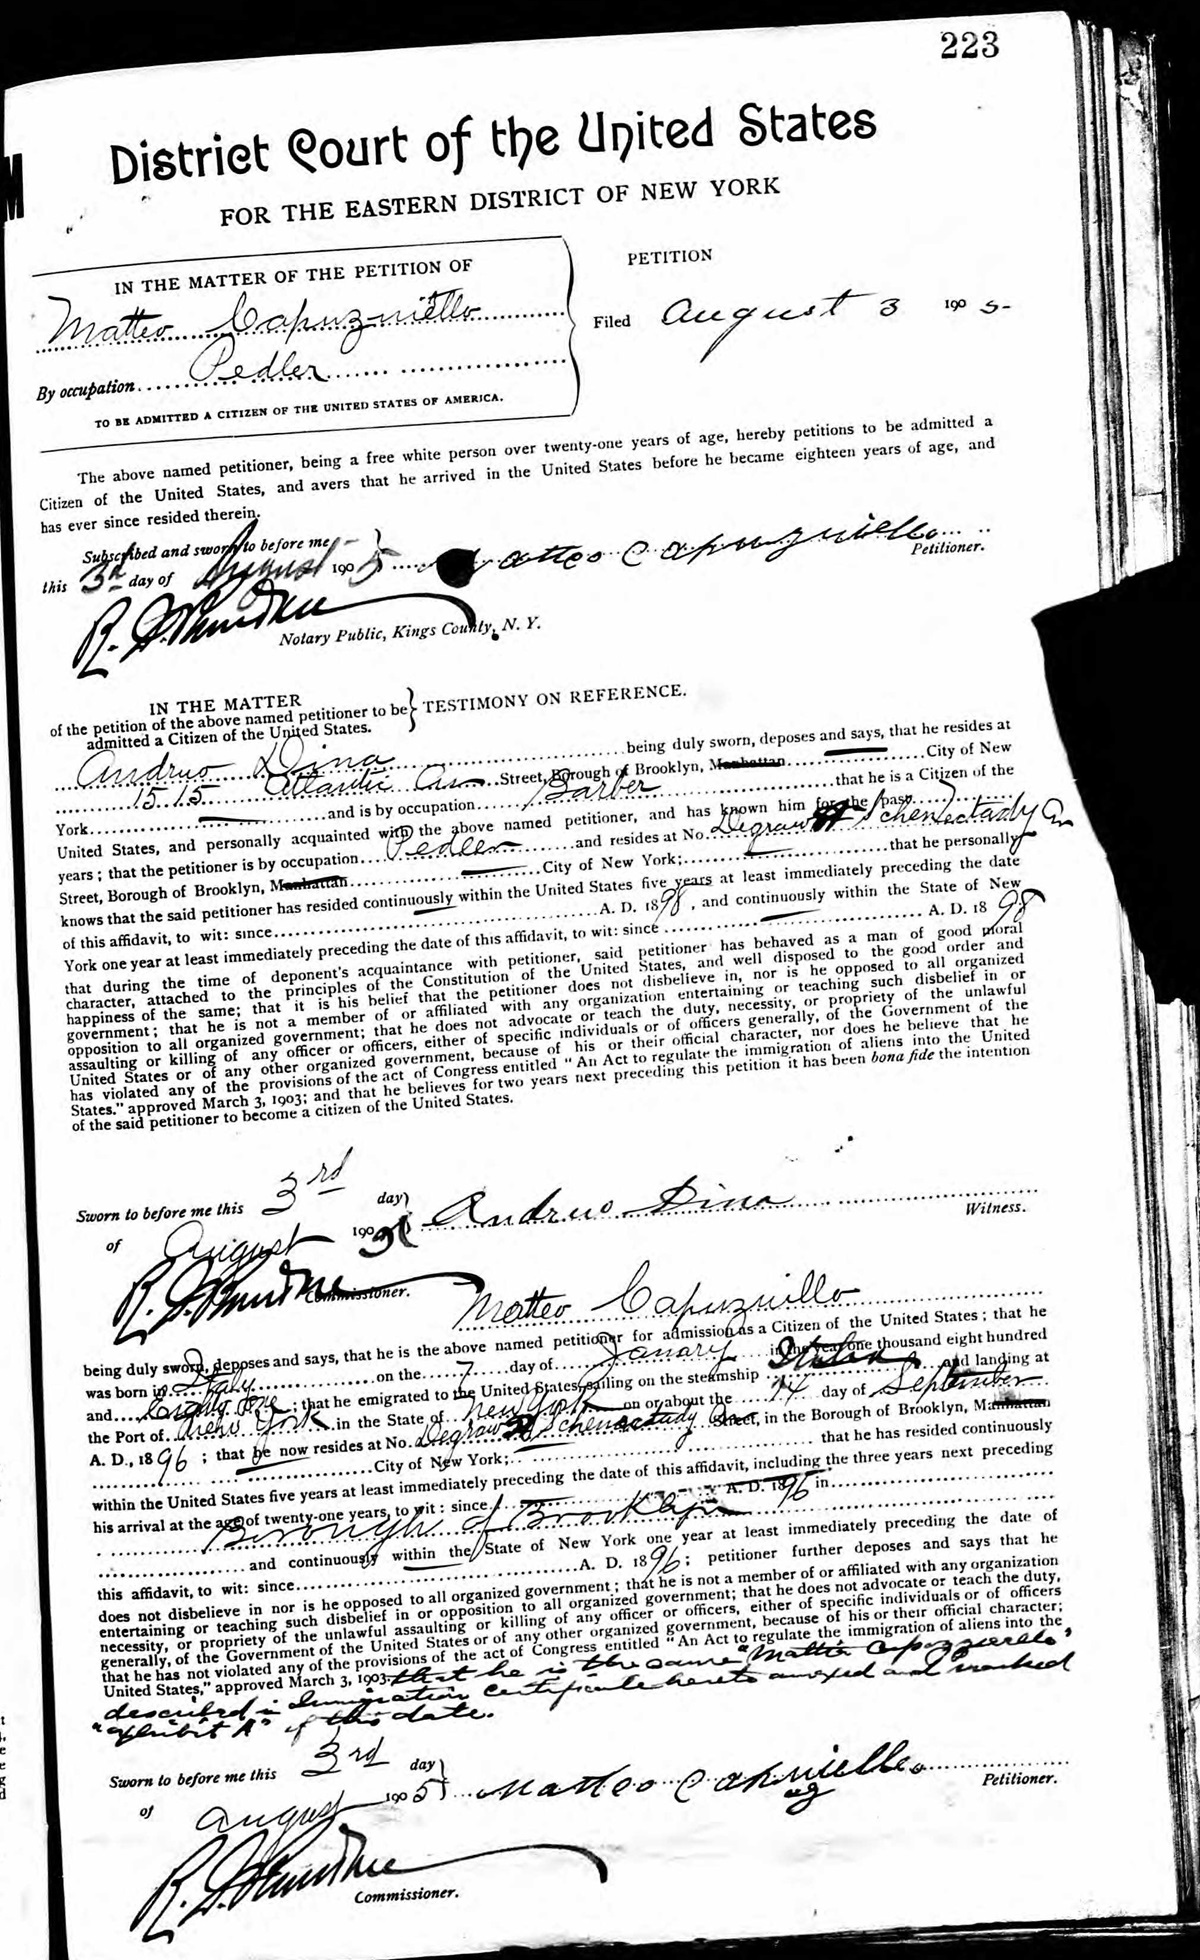 223
District Court of the United States
FOR THE EASTERN DISTRICT OF NEW YORK
IN THE MATTER OF THE PETITION OF
Matteo Capuzniello
By occupation Pedler
TO BE ADMITTED A CITIZEN OF THE UNITED STATES OF AMERICA.
PETITION
Filed August 3 1905-
The above named petitioner, being a free white person over twenty-one years of age, hereby petitions to be admitted a
Citizen of the United States, and avers that he arrived in the United States before he became eighteen years of age, and
has ever since resided therein.
Subscribed and sworn to before me
this 3d day of August 1905 Matteo Capuzniello
Petitioner.
Notary Public, Kings County, N. Y.
IN THE MATTER
of the petition of the above named petitioner to be
admitted a Citizen of the United States.
} TESTIMONY ON REFERENCE.
Andrew Dina being duly sworn, deposes and says, that he resides at
1515 Atlantic Av Street, Borough of Brooklyn, Manhattan City of New
York and is by occupation Barber that he is a Citizen of the
United States, and personally acquainted with the above named petitioner, and has known him for the past 7
years; that the petitioner is by occupation Pedler and resides at No. Degraw St Schenectady Av
Street, Borough of Brooklyn, Manhattan City of New York; that he personally
knows that the said petitioner has resided continuously within the United States five years at least immediately preceding the date
of this affidavit, to wit: since A. D. 1898, and continuously within the State of New
York one year at least immediately preceding the date of this affidavit, to wit: since A. D. 1898
that during the time of deponent's acquaintance with petitioner, said petitioner has behaved as a man of good moral
character, attached to the principles of the Constitution of the United States, and well disposed to the good order and
happiness of the same; that it is his belief that the petitioner does not disbelieve in, nor is he opposed to all organized
government; that he is not a member of or affiliated with any organization entertaining or teaching such disbelief in or
opposition to all organized government; that he does not advocate or teach the duty, necessity, or propriety of the unlawful
assaulting or killing of any officer or officers, either of specific individuals or of officers generally, of the Government of the
United States or of any other organized government, because of his or their official character, nor does he believe that he
has violated any of the provisions of the act of Congress entitled "An Act to regulate the immigration of aliens into the United
States." approved March 3, 1903; and that he believes for two years next preceding this petition it has been bona fide the intention
of the said petitioner to become a citizen of the United States.
Sworn to before me this 3rd day
of August 1905 Andrew Dina
Witness.
Commissioner.
Matteo Capuzniello
being duly sworn, deposes and says, that he is the above named petitioner for admission as a Citizen of the United States; that he
was born in Italy on the 7 day of January in the year one thousand eight hundred
and Eighty One; that he emigrated to the United States, sailing on the steamship and landing at
the Port of New York in the State of New York on or about the 14 day of September
A. D., 1896; that he now resides at No. Degraw St Schenectady Av Street, in the Borough of Brooklyn, Manhattan
City of New York; that he has resided continuously
within the United States five years at least immediately preceding the date of this affidavit, including the three years next preceding
his arrival at the age of twenty-one years, to wit: since A. D. 1896 in
Borough of Brooklyn
and continuously within the State of New York one year at least immediately preceding the date of
this affidavit, to wit: since A. D. 1896; petitioner further deposes and says that he
does not disbelieve in nor is he opposed to all organized government; that he is not a member of or affiliated with any organization
entertaining or teaching such disbelief in or opposition to all organized government; that he does not advocate or teach the duty,
necessity, or propriety of the unlawful assaulting or killing of any officer or officers, either of specific individuals or of officers
generally, of the Government of the United States or of any other organized government, because of his or their official character;
that he has not violated any of the provisions of the act of Congress entitled "An Act to regulate the immigration of aliens into the
United States," approved March 3, 1903. that he is the same "Matteo Capozzierello"
described in Immigration certificate hereto annexed and marked
"Exhibit A" of this date.
Sworn to before me this 3rd day
of August 1905 Matteo Capuzniello
Petitioner.
Commissioner.